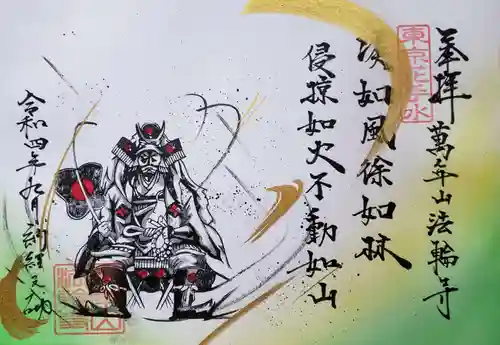 奉拝 萬年山法輪寺
疾如風徐如林
侵掠如火不動如山
令和四年九月